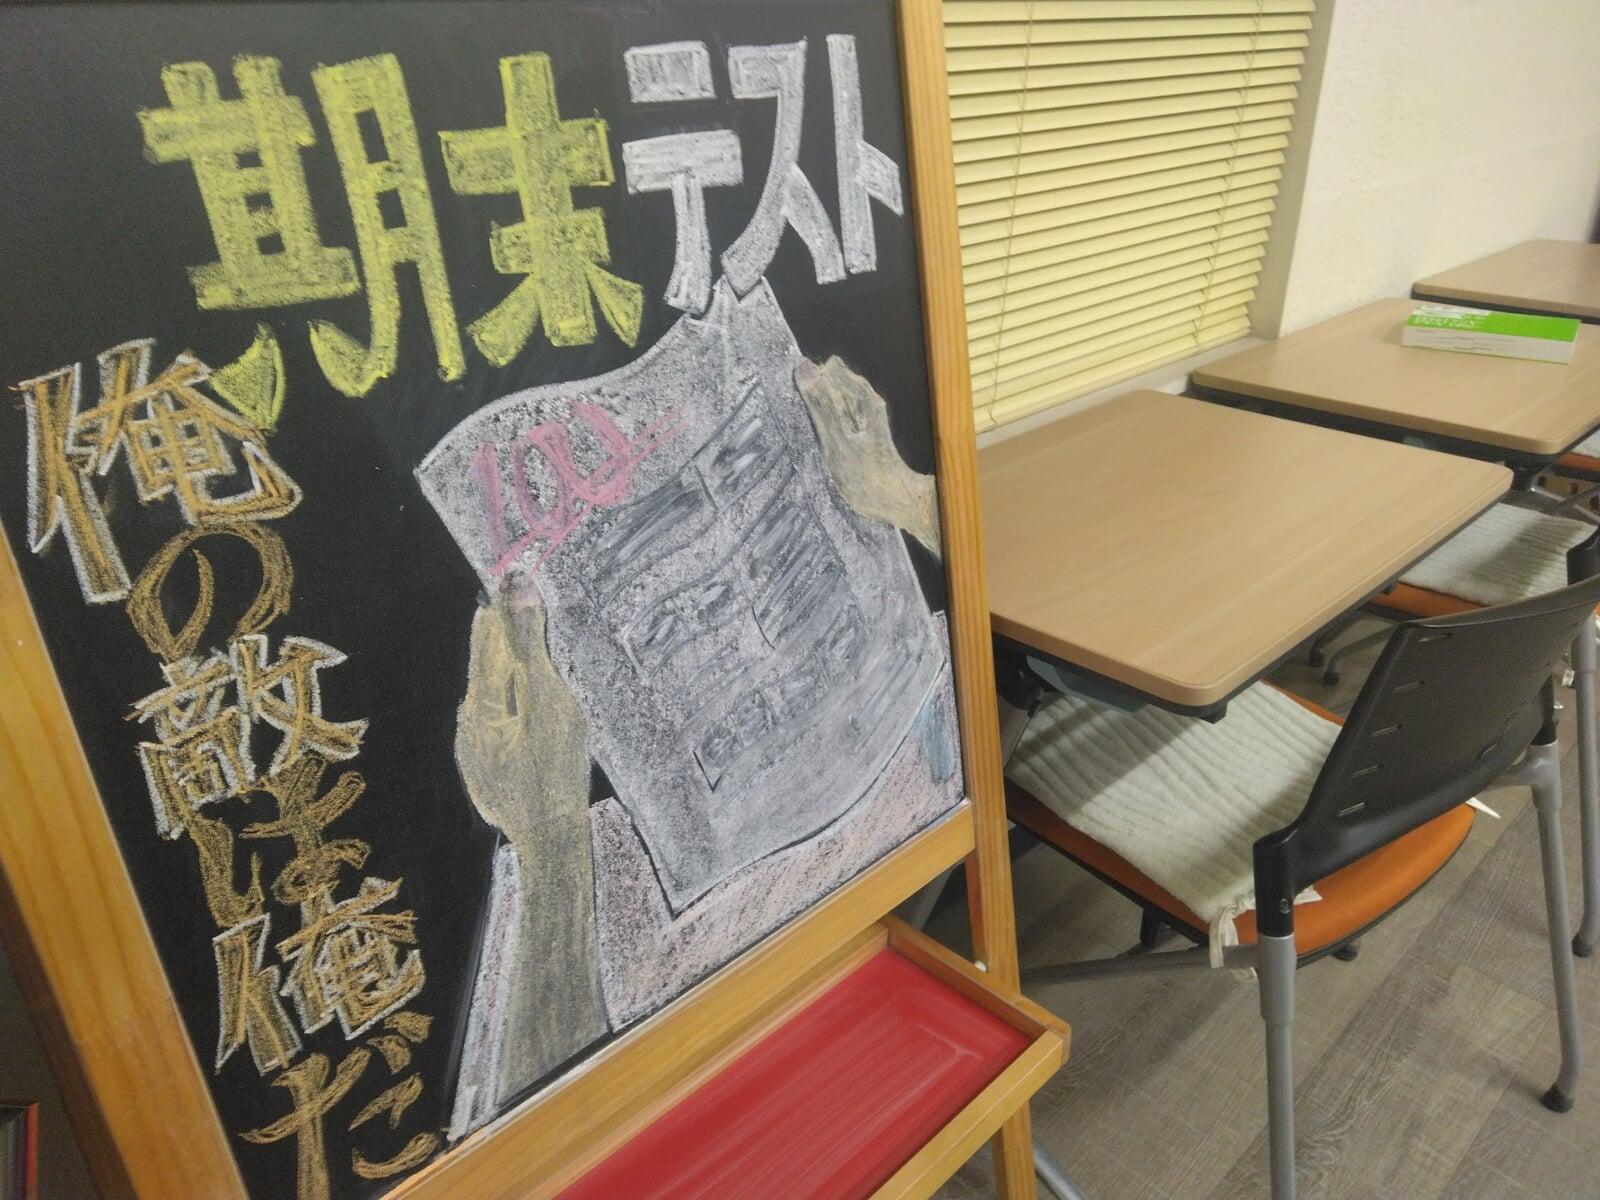 期末テスト
俺の敵は俺だ
100